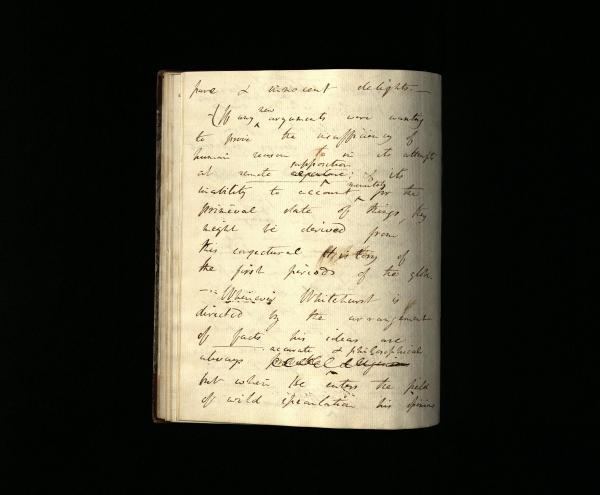 pure & innocent delights. —
(If any new arguments were wanting
to prove the insufficiency of
human reason to in its attempts
at remote supposition; of its
inability to account minutely for the
primeval state of things they
might be derived from
this conjectural History of
the first periods of the globe.
— Whenever Whitehurst is
directed by the arrangement
of facts his ideas are
always accurate & philosophical
but when he enters the field
of wild speculation his opinions